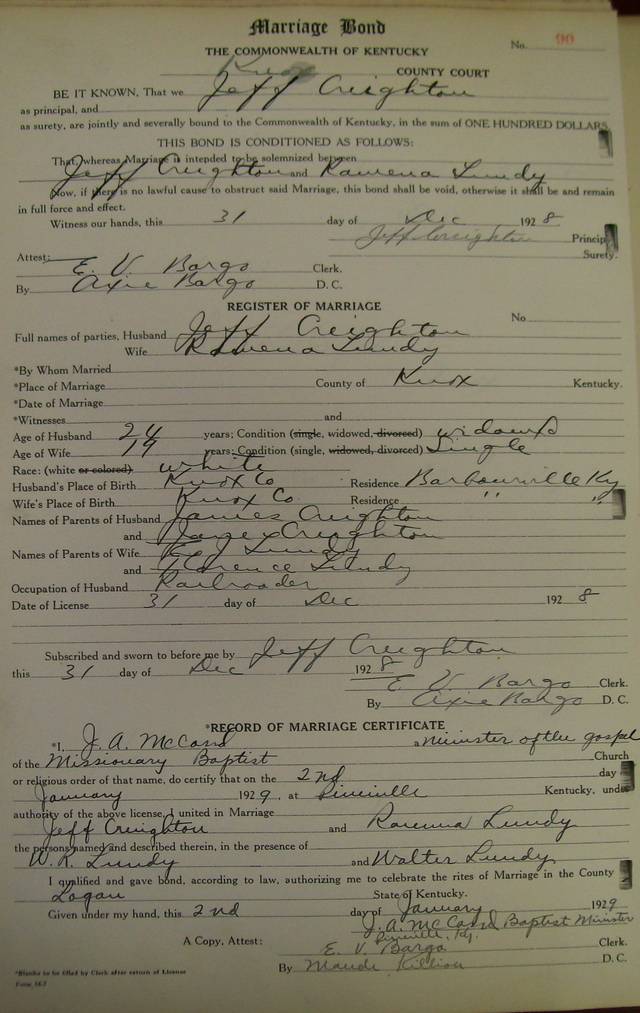 Marriage Bond
THE COMMONWEALTH OF KENTUCKY
No. 90
Knox COUNTY COURT
BE IT KNOWN, That we Jeff Creighton
as principal, and
as surety, are jointly and severally bound to the Commonwealth of Kentucky, in the sum of ONE HUNDRED DOLLARS
THIS BOND IS CONDITIONED AS FOLLOWS:
That, whereas Marriage is intended to be solemnized between
Jeff Creighton and Rowena Lundy
Now, if there is no lawful cause to obstruct said Marriage, this bond shall be void, otherwise it shall be and remain
in full force and effect.
Witness our hands, this 31 day of Dec 1928
Jeff Creighton Princip
Surety.
Attest: E. V. Bargo Clerk.
By Axie Bargo D. C.
REGISTER OF MARRIAGE
No
Full names of parties, Husband Jeff Creighton
Wife Rowena Lundy
*By Whom Married
*Place of Marriage County of Knox Kentucky.
*Date of Marriage
*Witnesses and
Age of Husband 24 years; Condition (single, widowed, divorced) widowed
Age of Wife 19 years; Condition (single, widowed, divorced) Single
Race: (white or colored) white
Husband's Place of Birth Knox Co Residence Barbourville Ky
Wife's Place of Birth Knox Co Residence " "
Names of Parents of Husband James Creighton
and Jane Creighton
Names of Parents of Wife Lundy
and Florence Lundy
Occupation of Husband Railroader
Date of License 31 day of Dec 1928
Subscribed and sworn to before me by Jeff Creighton
this 31 day of Dec 1928
E. V. Bargo Clerk.
By Axie Bargo D. C.
*RECORD OF MARRIAGE CERTIFICATE
*I, J. A. McCord a minister of the gospel
of the Missionary Baptist Church
or religious order of that name, do certify that on the 2nd day
January 1929, at Pineville Kentucky, under
authority of the above license, I united in Marriage
Jeff Creighton and Rowena Lundy
the persons named and described therein, in the presence of
W. R. Lundy and Walter Lundy
I qualified and gave bond, according to law, authorizing me to celebrate the rites of Marriage in the County
Logan State of Kentucky.
Given under my hand, this 2nd day of January 1929
J. A. McCord Baptist Minister
Pineville, Ky.
A Copy, Attest: E. V. Bargo Clerk.
By Maude Killion D. C.
*Blanks to be filled by Clerk after return of License
Form 567